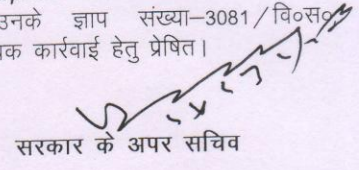 उनके ज्ञाप संख्या–3081/वि०स०
क कार्रवाई हेतु प्रेषित।
सरकार के अपर सचिव